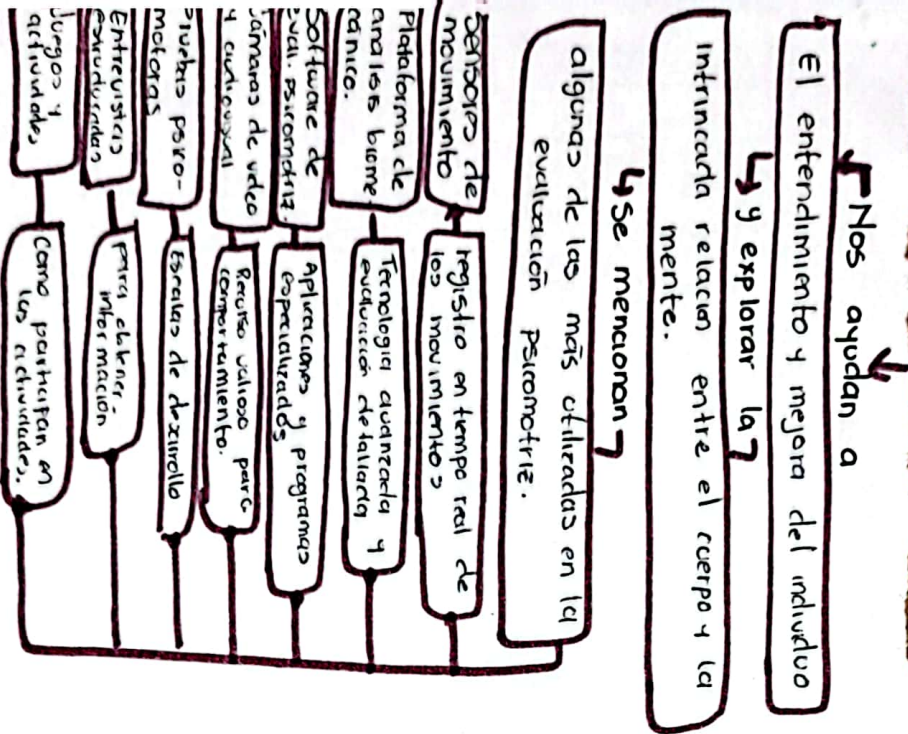 Nos ayudan a
El entendimiento y mejora del individuo
y explorar la
intrincada relacion entre el cuerpo y la
mente.
Se mencionan
algunas de las más utilizadas en la
evaluación psicomotriz.
Sensores de
movimiento
registro en tiempo real de
los movimientos
Plataforma de
analisis biome-
cánico.
Tecnologia avanzada y
evaluación detallada
Software de
eval. psicomotriz.
Aplicaciones y programas
especializados
cámaras de video
y audiovisual
Recurso valioso para
comportamiento.
Pruebas psico-
motoras
Escalas de desarrollo
Entrevistas
estructuradas
para obtener
información
Juegos y
actividades
Como participan en
las actividades.